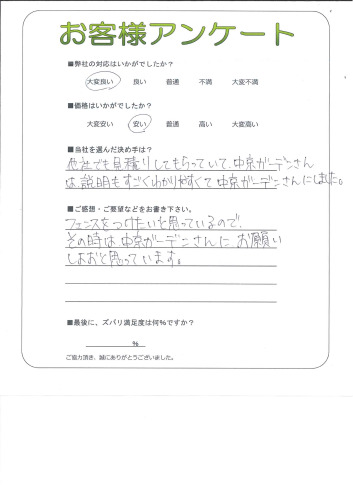 お客様アンケート
■弊社の対応はいかがでしたか？
大変良い 良い 普通 不満 大変不満
■価格はいかがでしたか？
大変安い 安い 普通 高い 大変高い
■当社を選んだ決め手は？
他社でも見積りしてもらっていて、中京ガーデンさん
は、説明もすごくわかりやすくて中京ガーデンさんにしました。
■ご感想・ご要望などをお書き下さい。
フェンスをつけたいと思っているので、
その時は中京ガーデンさんにお願い
しようと思っています。
■最後に、ズバリ満足度は何％ですか？
％
ご協力頂き、誠にありがとうございました。